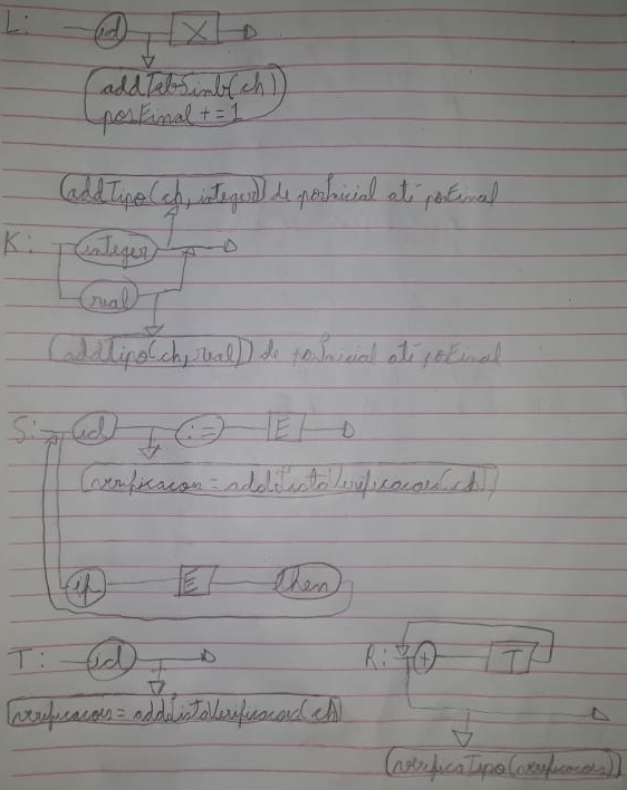 L: id X
addTabSimb(ch)
posFinal += 1
(addTipo(ch, integer)) de posInicial até posFinal
K: integer
real
(addTipo(ch, real)) de posInicial até posFinal
S: id := E
verificacoes = addListaVerificacoes(ch)
if E then
T: id R: + T
verificacoes = addListaVerificacoes(ch)
(verificaTipo(verificacoes))